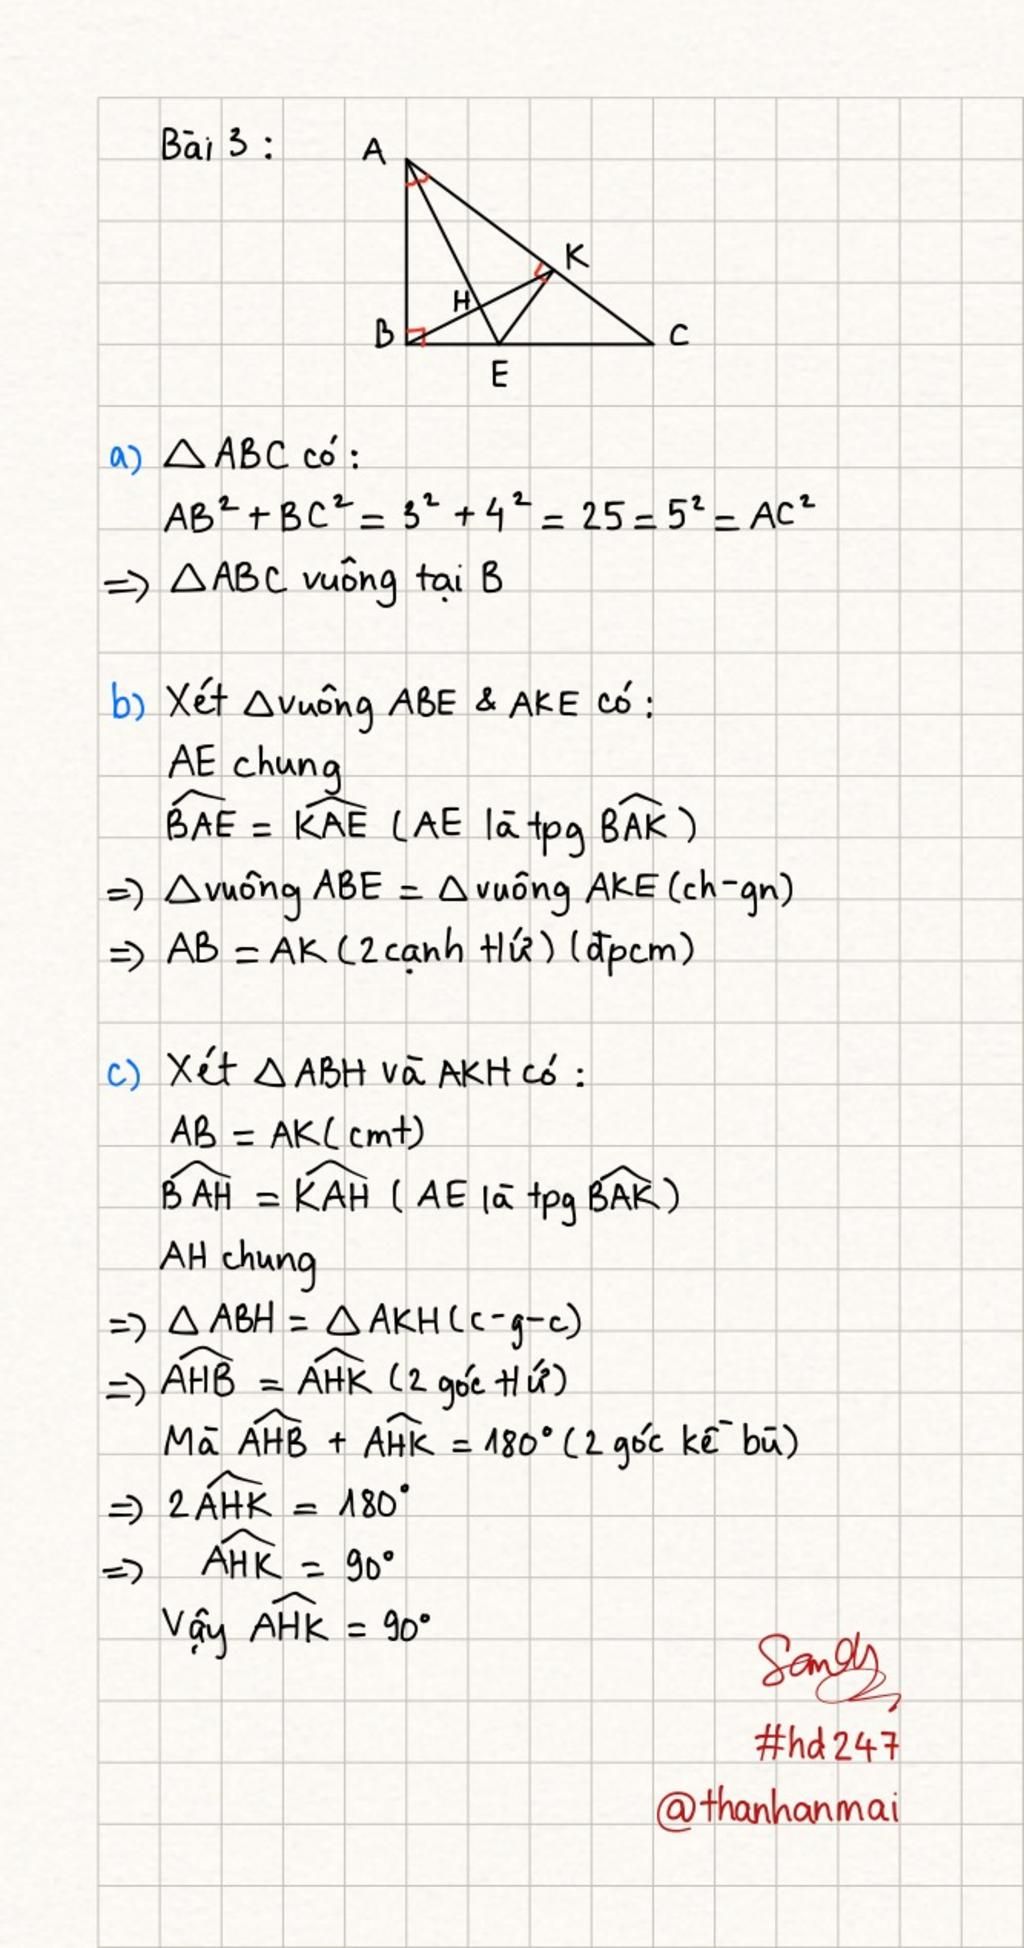 Bài 3 :
A
K
H
B
C
E
a) △ ABC có :
AB² + BC² = 3² + 4² = 25 = 5² = AC²
=> △ ABC vuông tại B
b) Xét △vuông ABE & AKE có :
AE chung
\widehat{BAE} = \widehat{KAE} ( AE là tpg \widehat{BAK} )
=> △vuông ABE = △ vuông AKE (ch-gn)
=> AB = AK ( 2 cạnh tứ ) ( đpcm )
c) Xét △ ABH và AKH có :
AB = AK ( cmt )
\widehat{BAH} = \widehat{KAH} ( AE là tpg \widehat{BAK} )
AH chung
=> △ ABH = △ AKH ( c-g-c )
=> \widehat{AHB} = \widehat{AHK} ( 2 góc tứ )
Mà \widehat{AHB} + \widehat{AHK} = 180° ( 2 góc kề bù )
=> 2\widehat{AHK} = 180°
=> \widehat{AHK} = 90°
Vậy \widehat{AHK} = 90°
Sandy
#hd247
@thanhanmai